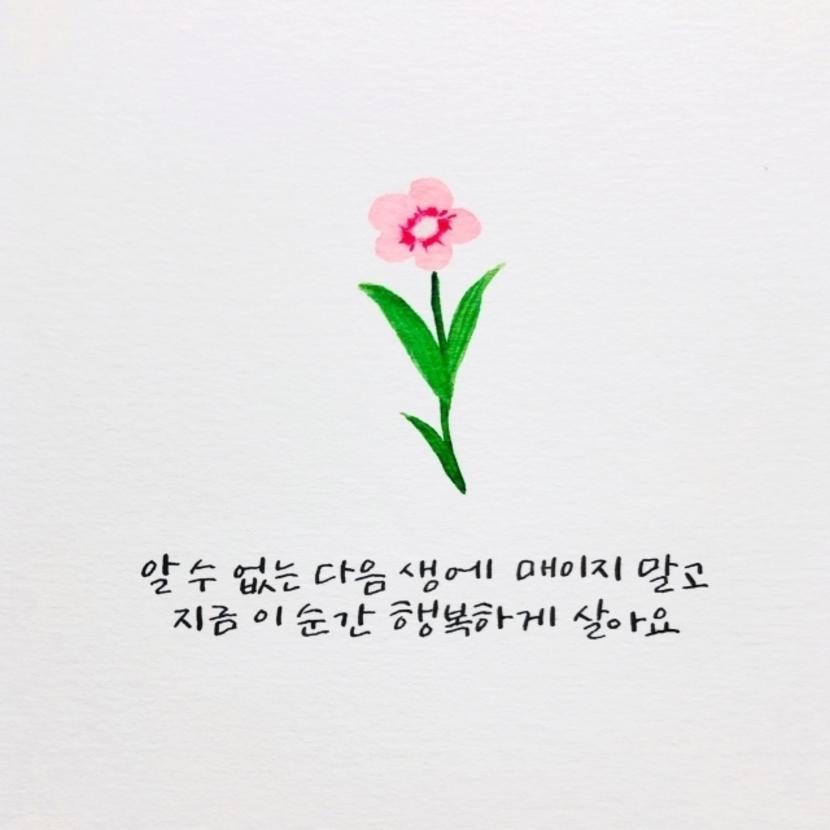 알 수 없는 다음 생에 매이지 말고
지금 이 순간 행복하게 살아요